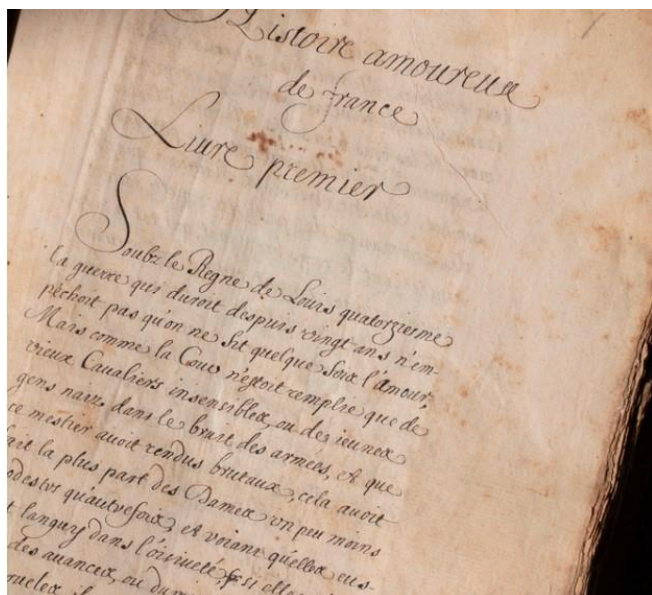 Histoire amoureuse
de france
Liure premier
Soubz le Regne de Louis quatorziesme
la guerre qui duroit despuis vingt ans n'em-
pèchoit pas qu'on ne fit quelque foix l'amour,
Mais comme la Cour n'estoit remplie que de
vieux Caualiers insensiblex, ou dez ieunex
gens naiz dans le bruit des armées, et que
ce mestier auoit rendus brutaux, cela auoit
fait la plus part des Damex vn peu moins
modestes qu'autrefoix, et voiant qu'ellex eus-
t languy dans l'oisiueté, si elle
des auancex, ou du m
ruelex, il